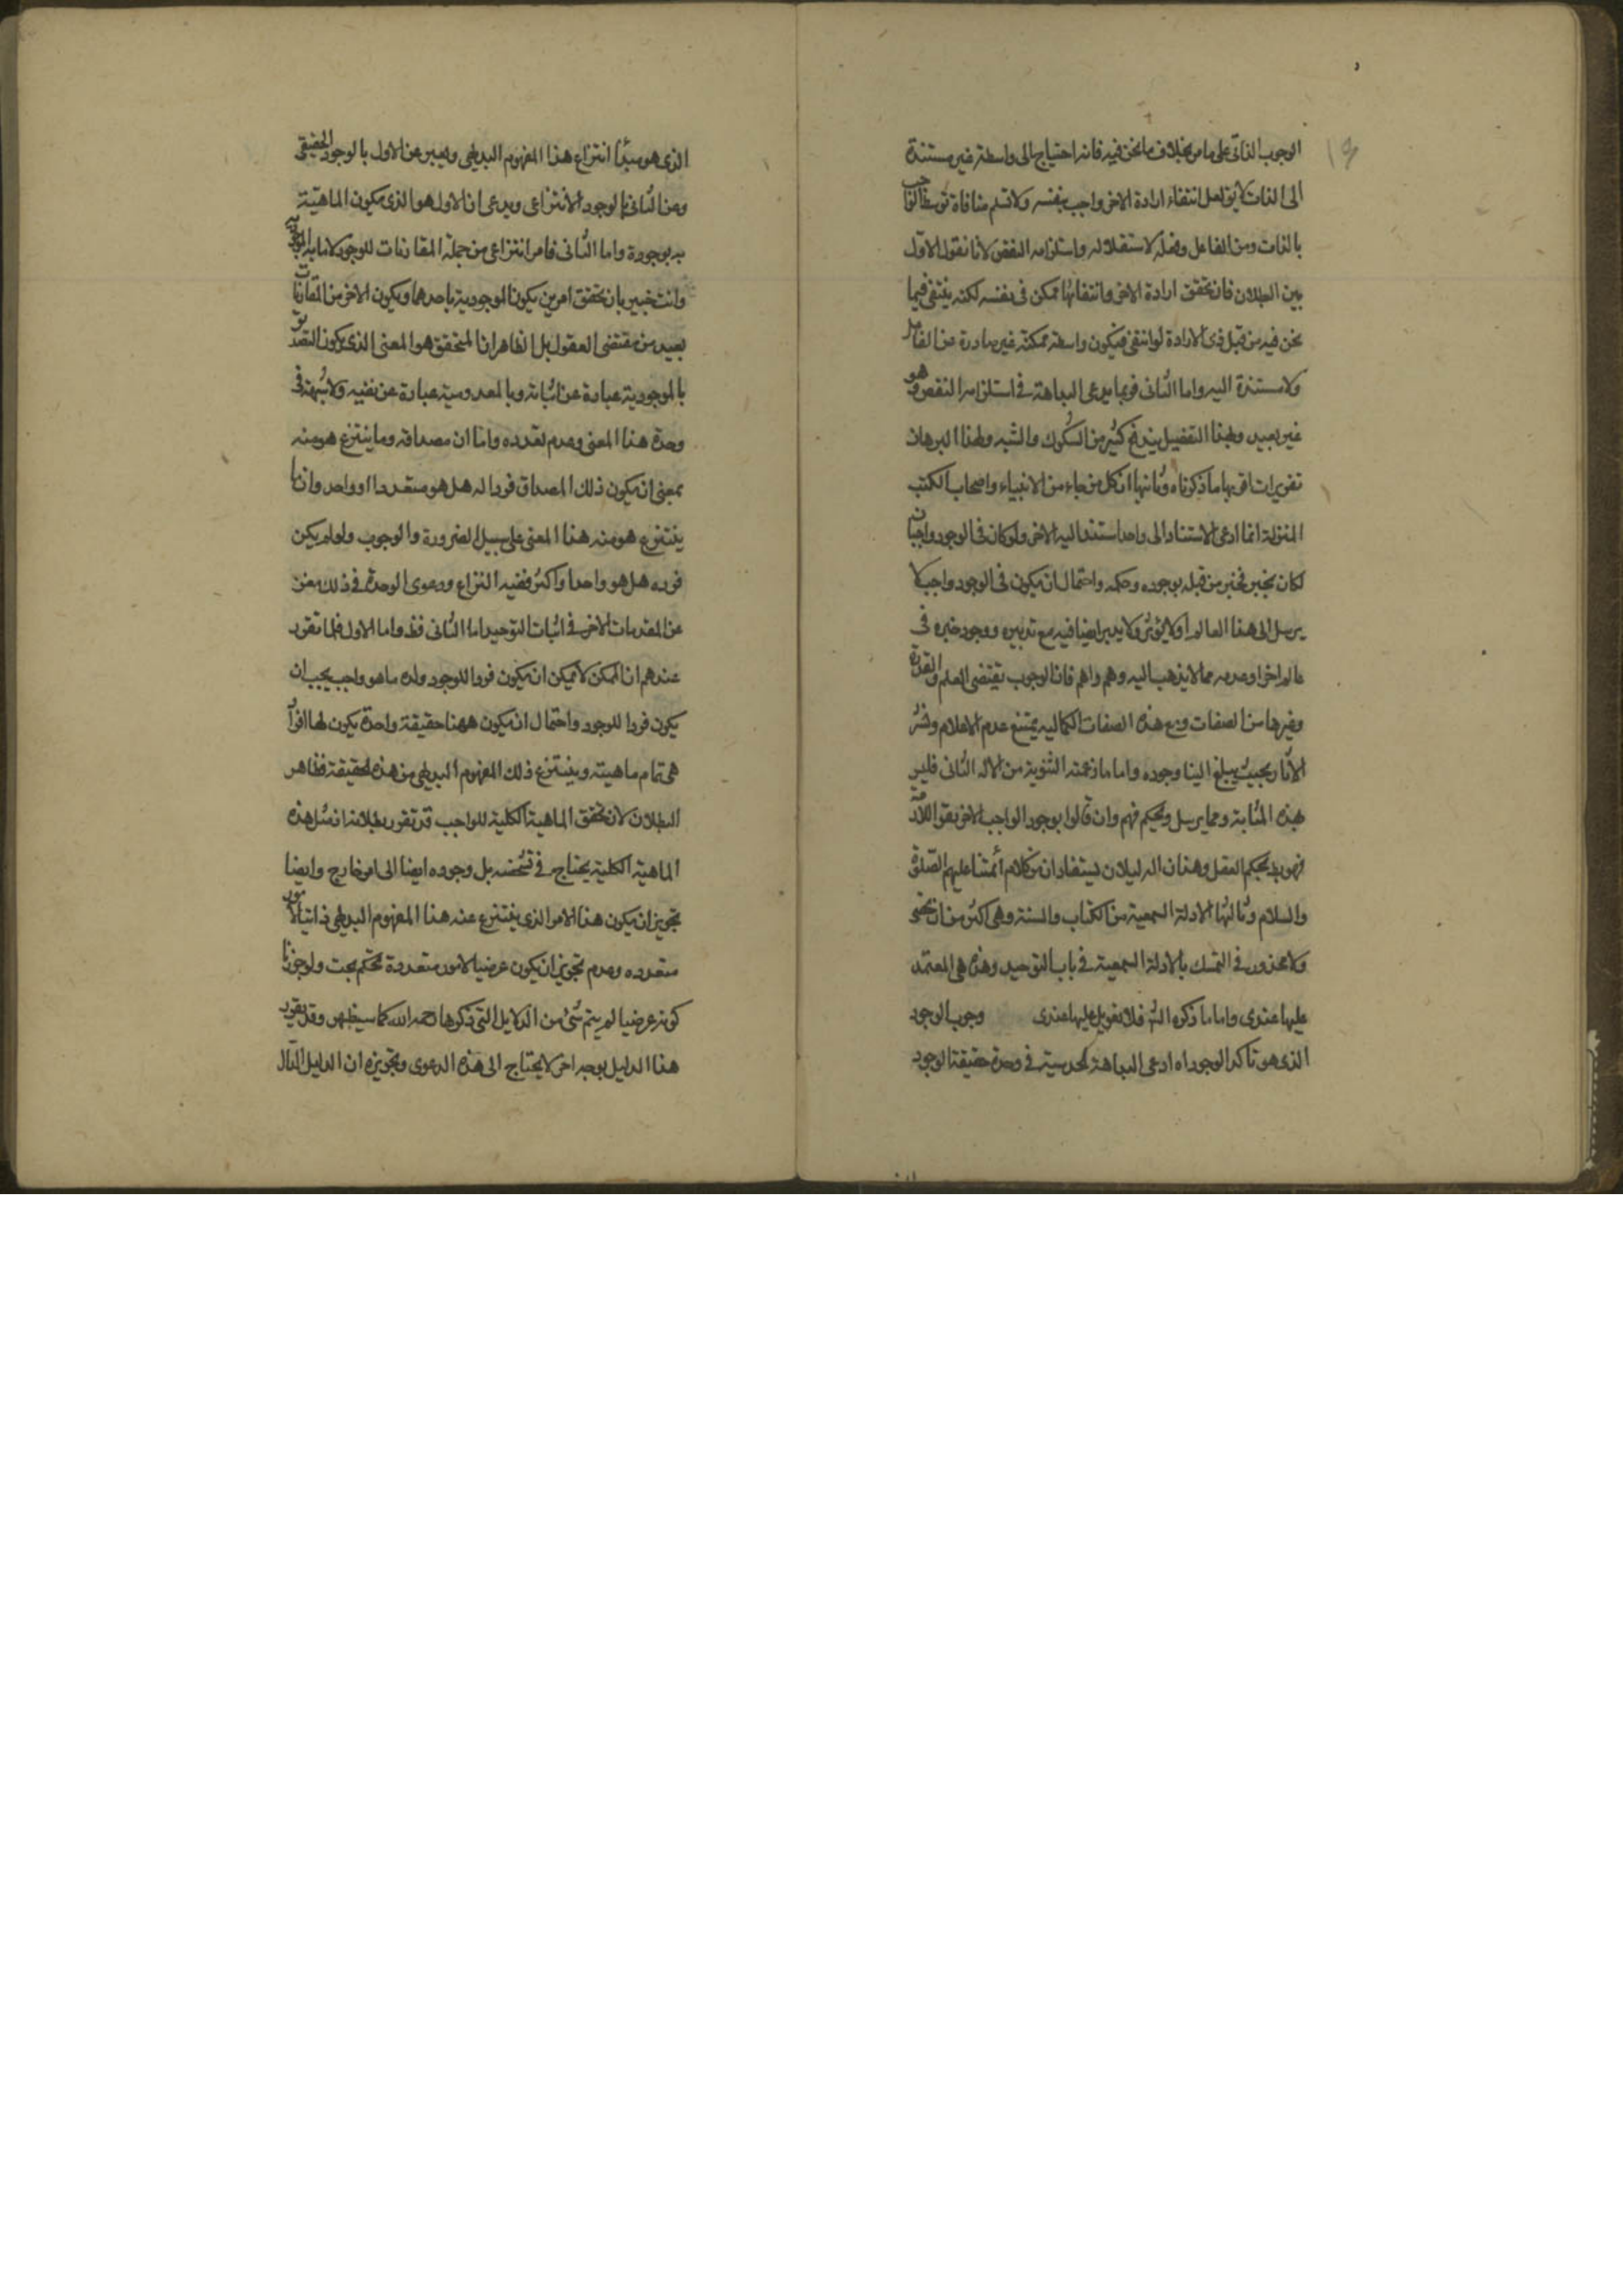 الوجوب الذاتى على ما مر بخلاف ما نحن فيه فانه احتياج الى واسطة غير مستندة
الى الذات لا يق لعل انتفاء ارادة الاخر واجب بنفسه ولا نسلم منافاة توسط الواجب
بالذات ومن الفاعل وفعله لاستقلاله واستلزامه النقص لانا نقول الاول
بين البطلان فان تحقق ارادة الاخر وانتفائها ممكن فى نفسه لكنه ينتفى فيما
نحن فيه من قبل ذى الارادة لو انتفى فيكون واسطة ممكنة غير صادرة من الفاعل
ولا مستندة اليه واما الثانى فربما يدعى البداهة فى استلزامه النقص وهو
غير بعيد ولهذا التفصيل يندفع كثير من الشكوك والشبه ولهذا البرهان
تقريرات اقربها ما ذكرناه وثانيها ان كل من جاء من الانبياء واصحاب الكتب
المنزلة انما ادعى الاستناد الى واحد استند اليه الاخر ولو كان فى الوجود واجبان
لكان يخبر مخبر من قبله بوجوده وحكمه واحتمال ان يكون فى الوجود واجب لا
يرسل الى هذا العالم او لا يؤثر ولا يدبر ايضا فيه مع تدبيره ووجود خبره فى
عالم اخر او عدمه مما لا يذهب اليه وهم واهم فان الوجوب يقتضى العلم والقدرة
وغيرها من الصفات ومع هذه الصفات الكمالية يمتنع عدم الاعلام ونشر
الآثار بحيث يبلغ الينا وجوده واما ما زعمته الثنوية من الاله الثانى فليس
بهذه المثابة ومما يرسل ويحكم فهم وان قالوا بوجود الواجب الاخر فقد
فهو بديحكم العقل وهذان الدليلان يستفادان من كلام أئمتنا عليهم الصلوة
والسلام وثالثها الادلة السمعية من الكتاب والسنة وهى اكثر من ان تحصى
ولا محذور فى التمسك بالادلة السمعية فى باب التوحيد وهذه هى المعتمد
عليها عندى واما ما ذكره الش فلا تعويل عليها عندى وجوب الوجود
الذى هو تأكد الوجود اه ادعى البداهة الحدسية فى وحدة حقيقة الوجود
الذى هو مبدأ انتزاع هذا المفهوم البديهى ويعبر عن الاول بالوجود الحقيقى
وعن الثانى بالوجود الانتزاعى ويدعى ان الاول هو الذى يكون الماهية
به موجودة واما الثانى فامر انتزاعى من جملة المقارنات للوجود لا ما به الموجودية
وانت خبير بان تحقق امرين يكون الموجودية باحدهما ويكون الاخر من المقارنات
بعيد من مقتضى العقول بل الظاهر ان المتحقق هو المعنى الذى يكون التصديق
بالموجودية عبارة عن اثباته وبالمعدومية عبارة عن نفيه ولا شبهة فى
وحدة هذا المعنى وعدم تعدده واما ان مصداقه وما ينتزع هو منه
بمعنى ان يكون ذلك المصداق فردا له هل هو متعدد او واحد وان ما
ينتزع هو منه هذا المعنى على سبيل الضرورة والوجوب ولو لم يكن
فرده هل هو واحد او اكثر ففيه النزاع ودعوى الوحدة فى ذلك مغن
عن المقدمات الاخر فى اثبات التوحيد اما الثانى فظ واما الاول فلما تقرر
عندهم ان الممكن لا يمكن ان يكون فردا للوجود وان ما هو واجب يجب ان
يكون فردا للوجود واحتمال ان يكون ههنا حقيقة واحدة يكون لها افراد
هى تمام ماهيته وينتزع ذلك المفهوم البديهى من هذه الحقيقة فظاهر
البطلان لان تحقق الماهية الكلية للواجب قد تقرر بطلانه ان مثل هذه
الماهية الكلية يحتاج فى تشخصه بل وجوده ايضا الى امر خارج وايضا
تجويز ان يكون هذا الامر الذى ينتزع عنه هذا المفهوم البديهى ذاتيا لامور
متعدده وعدم تجويز ان يكون عرضيا لامور متعددة تحكم بحت ولو جوزنا
كونه عرضيا لم يتم شئ من الدلايل التى ذكرها رحمه الله كما سيظهر وقد يقرر
هذا الدليل بوجه اخر لا يحتاج الى هذه الدعوى وتجويزه ان الدليل الدال